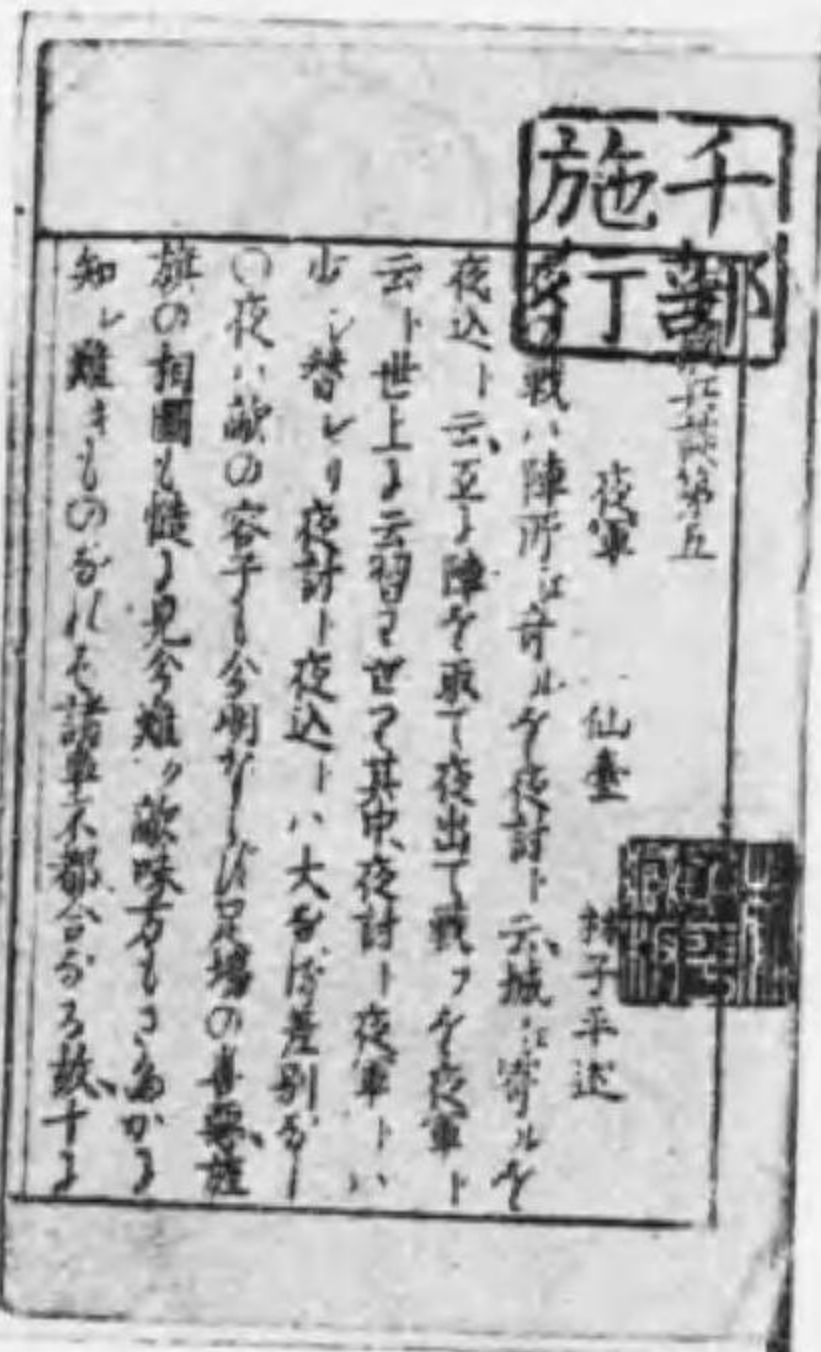 千部
施行
海國兵談第五
夜軍 仙臺 林子平述
夜の戦ハ陣所江寄ルを夜討ト云城江寄ルを
夜込ト云互ニ陣を取て夜出て戦フを夜軍ト
云ト世上ニ云習ワせて其中夜討ト夜軍トハ
少シ替レリ夜討ト夜込トハ大なる差別なし
〇夜ハ敵の容子も分明ならず足場の善悪旌
旗の相圖も慥ニ見分難ク敵味方もさだかニ
知レ難きものなれば諸事不都合なる故十ニ